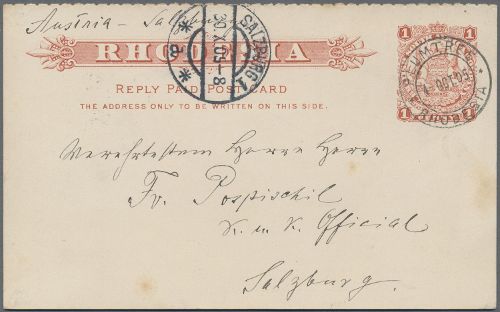 Austria - Salzburg
RHODESIA
REPLY PAID POST CARD
THE ADDRESS ONLY TO BE WRITTEN ON THIS SIDE.
1 1
1 1
SALZBURG 1
30.X.05-8
* 8 *
PLUMTREE
RHODESIA
Verehrtestem Herrn Herrn
Fr. Pospischil
K. u K. Official
Salzburg.